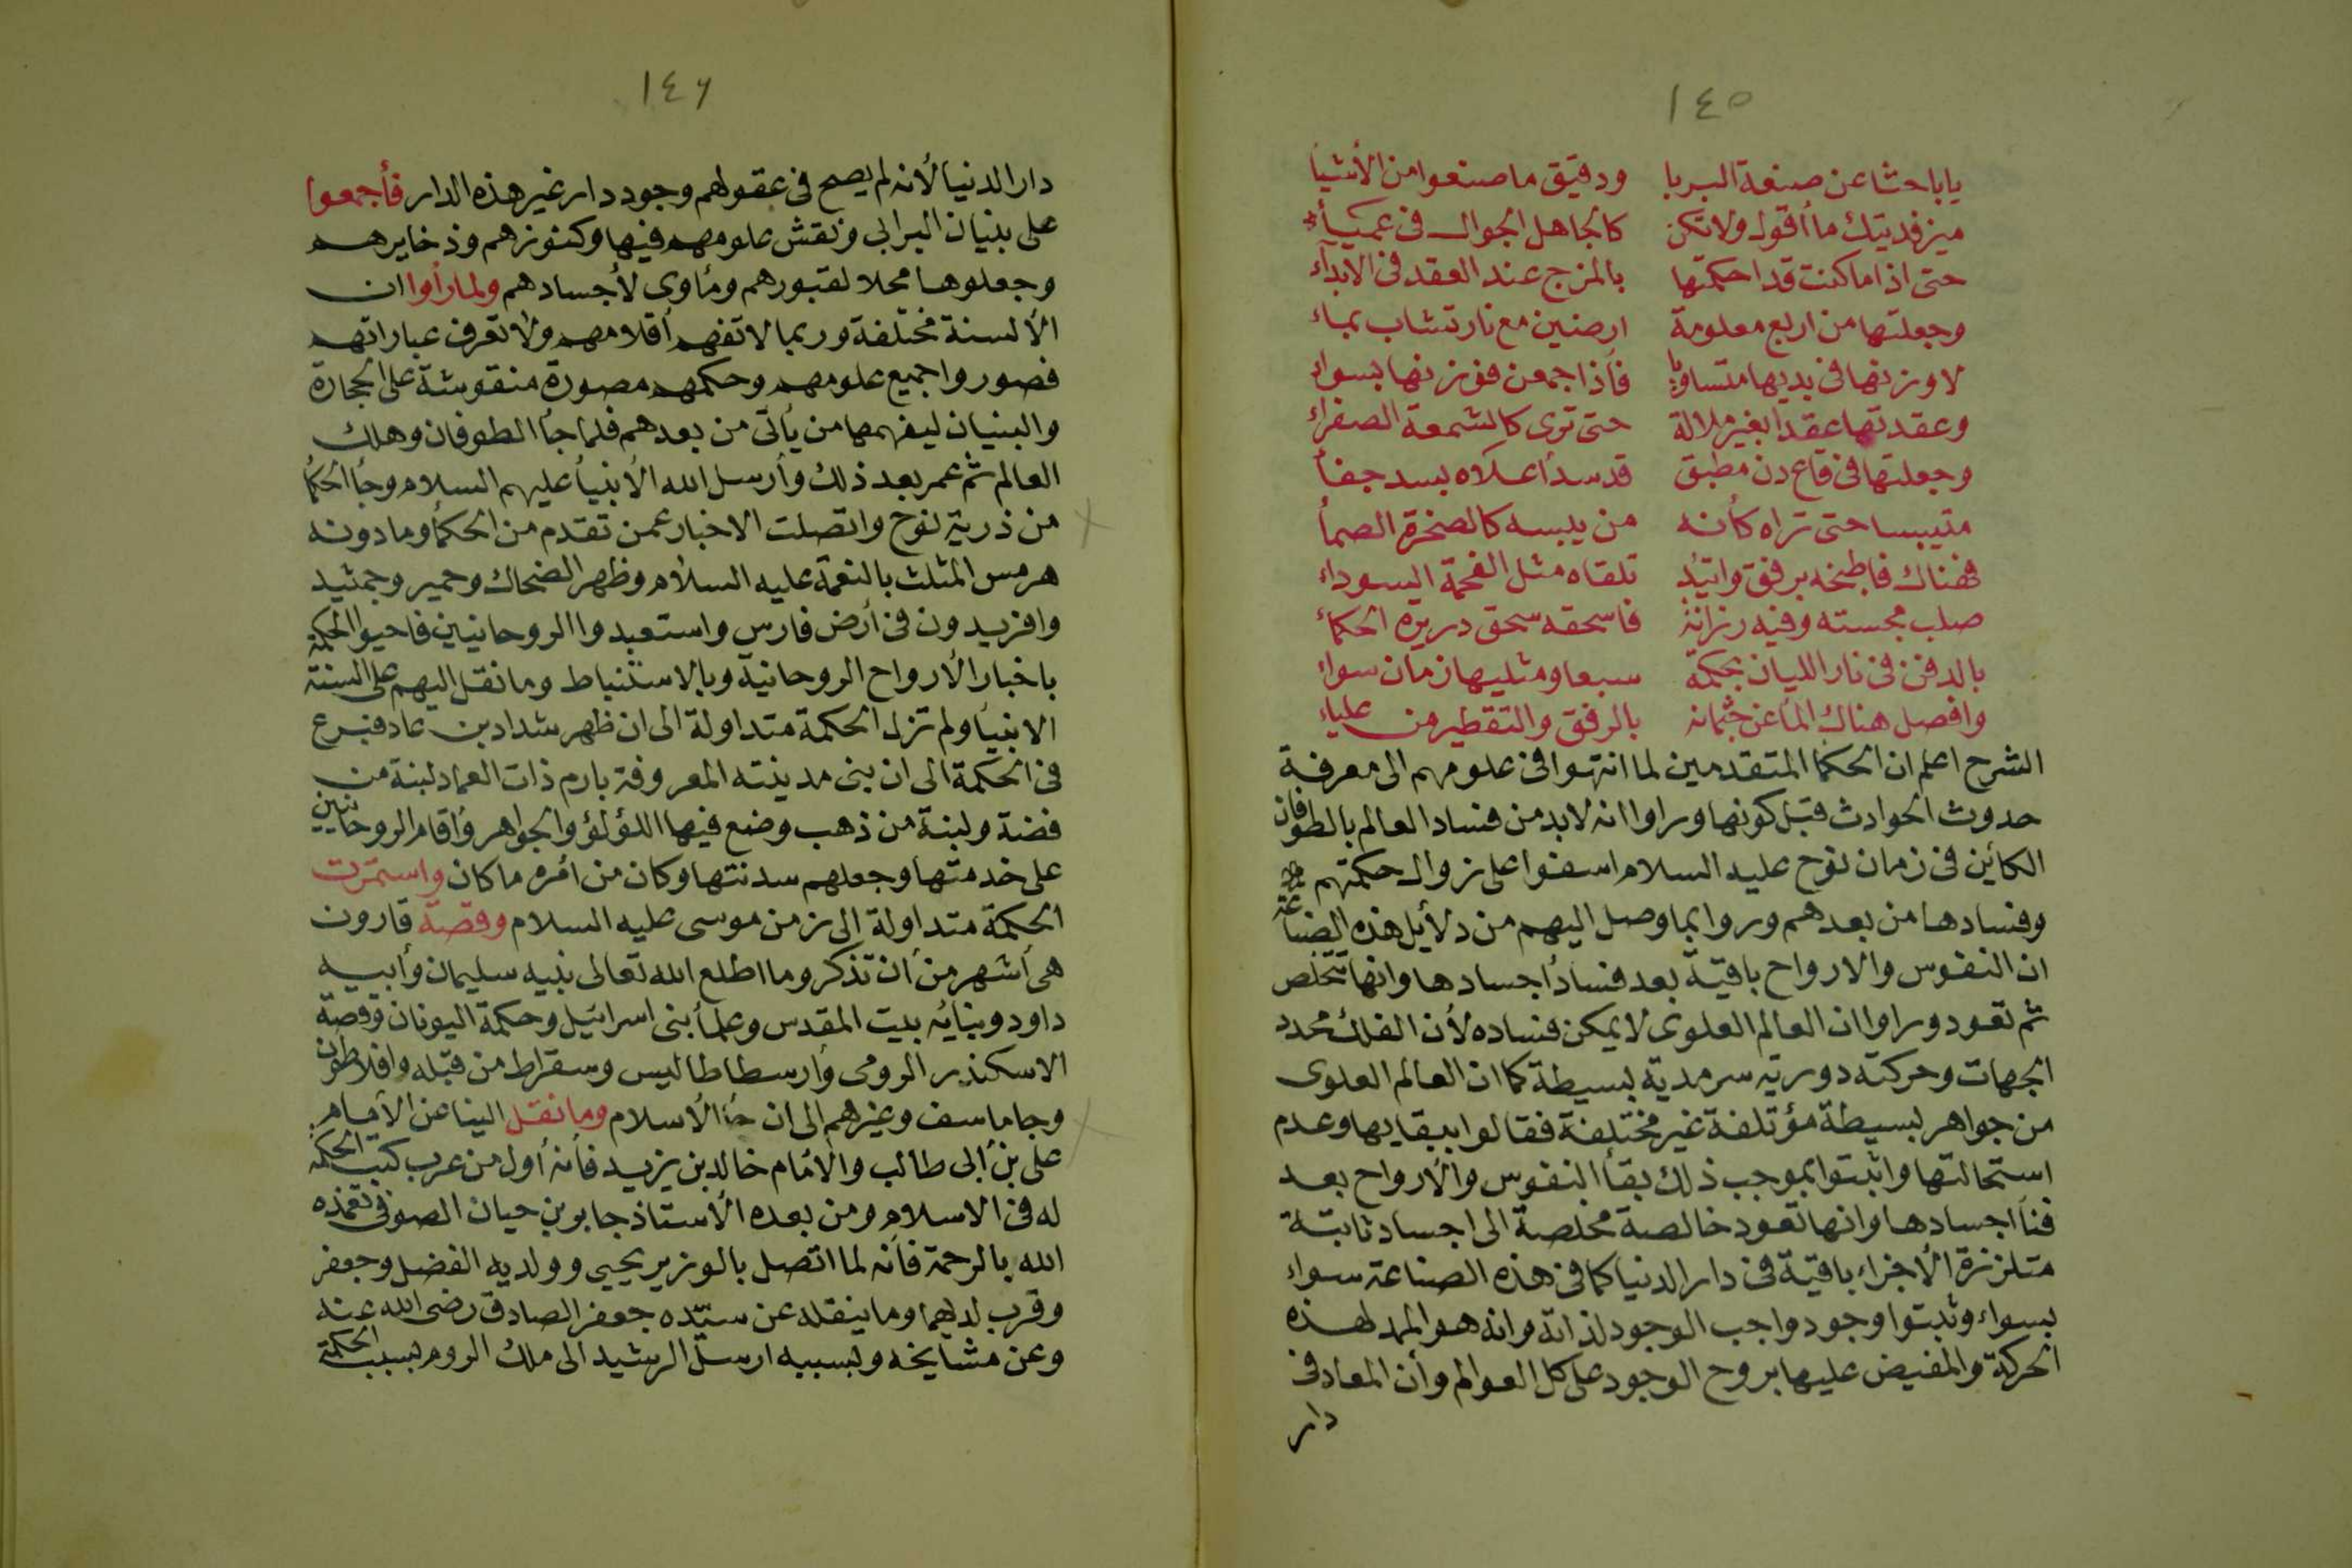 ١٤٥
يا باحثا عن صنعة البربا ودقيق ما صنعوا من الأشيا
ميز فديتك ما أقول ولا تكن كالجاهل الجوال فى عمياء
حتى اذا ما كنت قد احكمتها بالمزج عند العقد فى الابدآء
وجعلتها من اربع معلومة ارضين مع نار تشاب بماء
لا وزنها فى بديها متساويا فأذا جمعن فوزنها بسواء
وعقدتها عقدا بغير ملالة حتى ترى كالشمعة الصفراء
وجعلتها فى قاع دن مطبق قد سد أعلاه بسد جفأ
متيبسا حتى تراه كأنه من يبسه كالصخرة الصمأ
فهناك فاطبخه برفق واتئد تلقاه مثل الفحمة السوداء
صلب مجسته وفيه رزانة فاسحقه سحق دريره الحكماء
بالدفن فى نار الليان بحكمة سبعا ومثليها زمان سواء
وافصل هناك المأ عن جثمانه بالرفق والتقطير من علياء
الشرح اعلم ان الحكما المتقدمين لما انتهوا فى علومهم الى معرفة
حدوث الحوادث قبل كونها وراوا انه لابد من فساد العالم بالطوفان
الكأين فى زمان نوح عليه السلام اسفوا على زوال حكمتهم
وفسادها من بعدهم وروا بما وصل اليهم من دلأيل هذه الصناعة
ان النفوس والارواح باقية بعد فساد أجسادها وانها تتخلص
ثم تعود وراوا ان العالم العلوى لا يمكن فساده لأن الفلك محدد
الجهات وحركته دورية سرمدية بسيطة كما ان العالم العلوى
من جواهر بسيطة مؤتلفة غير مختلفة فقالوا ببقايها وعدم
استحالتها واثبتوا بموجب ذلك بقأ النفوس والأرواح بعد
فنأ اجسادها وانها تعود خالصة مخلصة الى اجساد ثابتة
متلززة الأجزاء باقية فى دار الدنيا كما فى هذه الصناعة سواء
بسواء وثبتوا وجود واجب الوجود لذاته وانه هو الممد لهذه
الحركة والمفيض عليها بروح الوجود على كل العوالم وأن المعاد فى
دار
١٤٦
دار الدنيا لأنه لم يصح فى عقولهم وجود دار غير هذه الدار فأجمعوا
على بنيان البرابى ونقش علومهم فيها وكنوزهم وذخايرهم
وجعلوها محلا لقبورهم ومأوى لأجسادهم ولما رأوا ان
الألسنة مختلفة وربما لا تفهم أقلامهم ولا تعرف عباراتهم
فصوروا جميع علومهم وحكمهم مصورة منقوشة على الحجارة
والبنيان ليفهمها من يأتى من بعدهم فلما جأ الطوفان وهلك
العالم ثم عمر بعد ذلك وأرسل الله الأنبيأ عليهم السلام وجأ الحكما
من ذرية نوح واتصلت الاخبار عمن تقدم من الحكمأ وما دونه
هرمس المثلث بالنعمة عليه السلام وظهر الضحاك وحمير وجمشيد
وافريدون فى أرض فارس واستعبدوا الروحانيين فاحيوا الحكمة
باخبار الأرواح الروحانية وبالاستنباط وما نقل اليهم على السنة
الانبيأ ولم تزل الحكمة متداولة الى ان ظهر شداد بن عاد فبرع
فى الحكمة الى ان بنى مدينته المعروفة بارم ذات العماد لبنة من
فضة ولبنة من ذهب وضع فيها اللؤلؤ والجواهر وأقام الروحانيين
على خدمتها وجعلهم سدنتها وكان من أمره ما كان واستمرت
الحكمة متداولة الى زمن موسى عليه السلام وقصة قارون
هى أشهر من أن تذكر وما اطلع الله تعالى نبيه سليمان وأبيه
داود وبنائه بيت المقدس وعلمأ بنى اسرائيل وحكمة اليونان وقصة
الاسكندر الرومى وأرسطاطاليس وسقراط من قبله وافلاطون
وجاماسف وغيرهم الى ان جأ الأسلام وما نقل الينا عن الأمام
على بن أبى طالب والأمام خالد بن يزيد فأنه أول من عرب كتب الحكمة
له فى الاسلام ومن بعده الأستاذ جابر بن حيان الصوفى تغمذه
الله بالرحمة فأنه لما اتصل بالوزير يحيى وولديه الفضل وجعفر
وقرب لديهما وما ينقله عن سيده جعفر الصادق رضى الله عنه
وعن مشايخه وبسببه ارسل الرشيد الى ملك الروم بسبب الحكمة